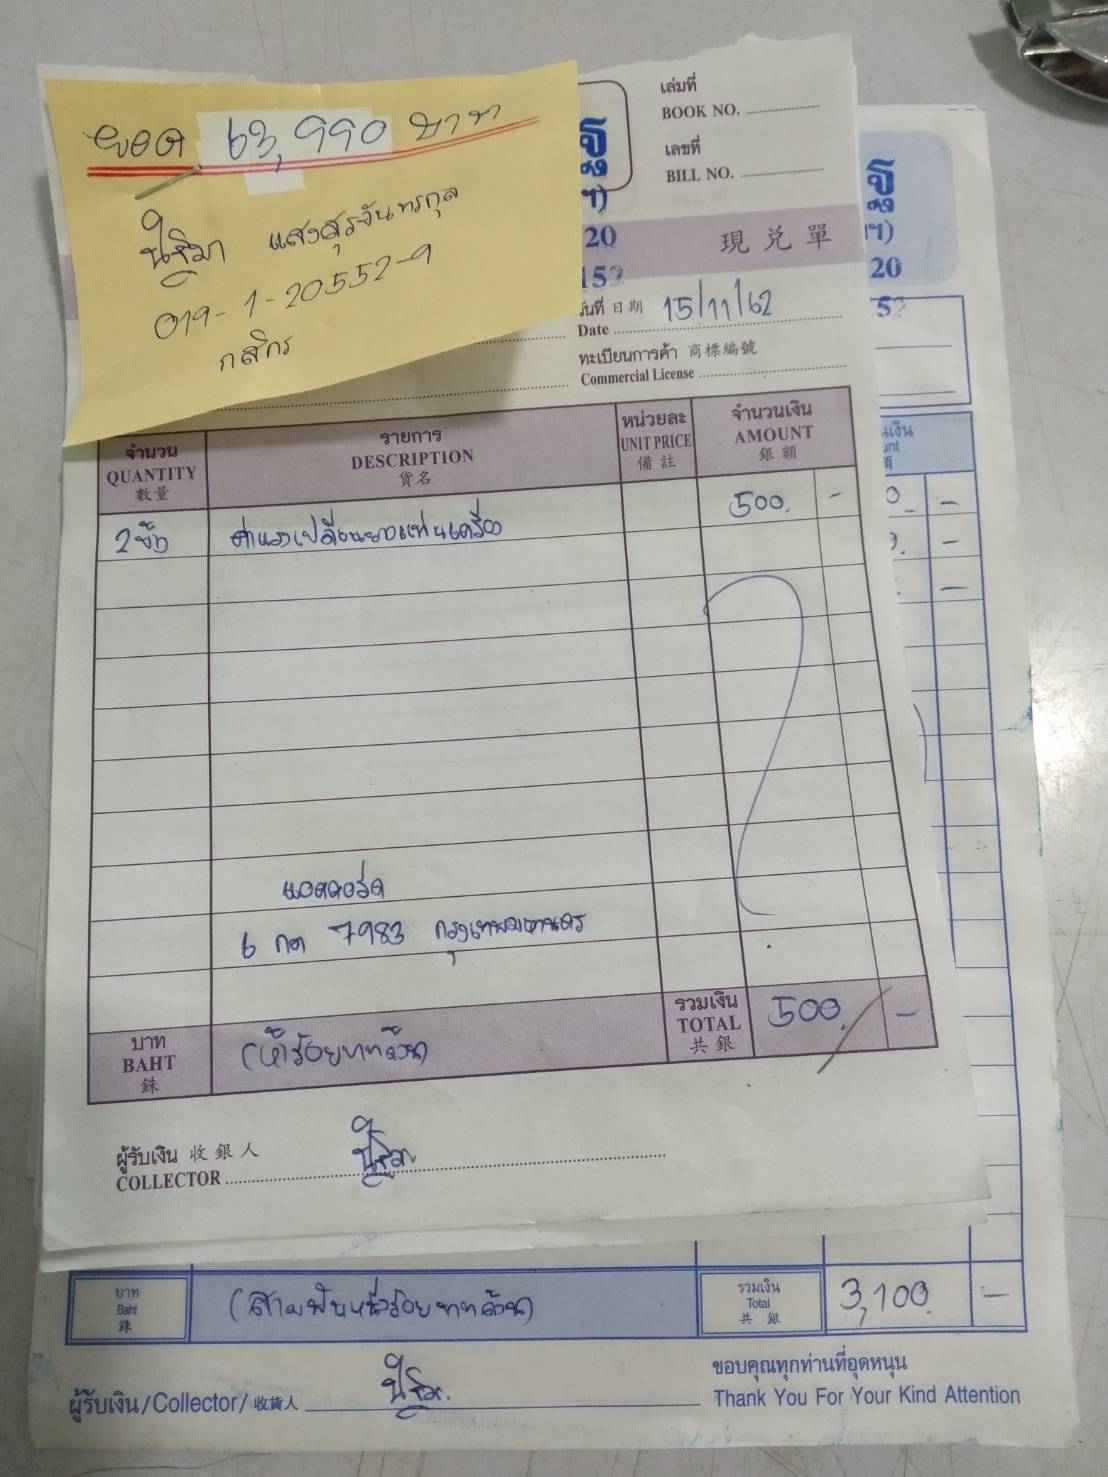 ยอด 63,990 บาท
นิฐิมา แสงสุรจันทรกุล
019-1-20552-9
กสิกร
เล่มที่
BOOK NO.
เลขที่
BILL NO.
現兑單
20
วันที่ 日期 15/11/62
Date
ทะเบียนการค้า 商標編號
Commercial License
จำนวน QUANTITY 數量
รายการ DESCRIPTION 貨名
หน่วยละ UNIT PRICE 備註
จำนวนเงิน AMOUNT 銀額
2 ตัว ค่าแรงเปลี่ยนยางแท่นเครื่อง 500. -
แอคคอร์ด
6 กต 7983 กรุงเทพมหานคร
บาท BAHT 銖 (ห้าร้อยบาทถ้วน) รวมเงิน TOTAL 共銀 500. -
ผู้รับเงิน 收銀人
COLLECTOR
20
บาท Baht 銖 (สามพันหนึ่งร้อยบาทถ้วน) รวมเงิน Total 共銀 3,100. -
ขอบคุณทุกท่านที่อุดหนุน
ผู้รับเงิน/Collector/收貨人 Thank You For Your Kind Attention